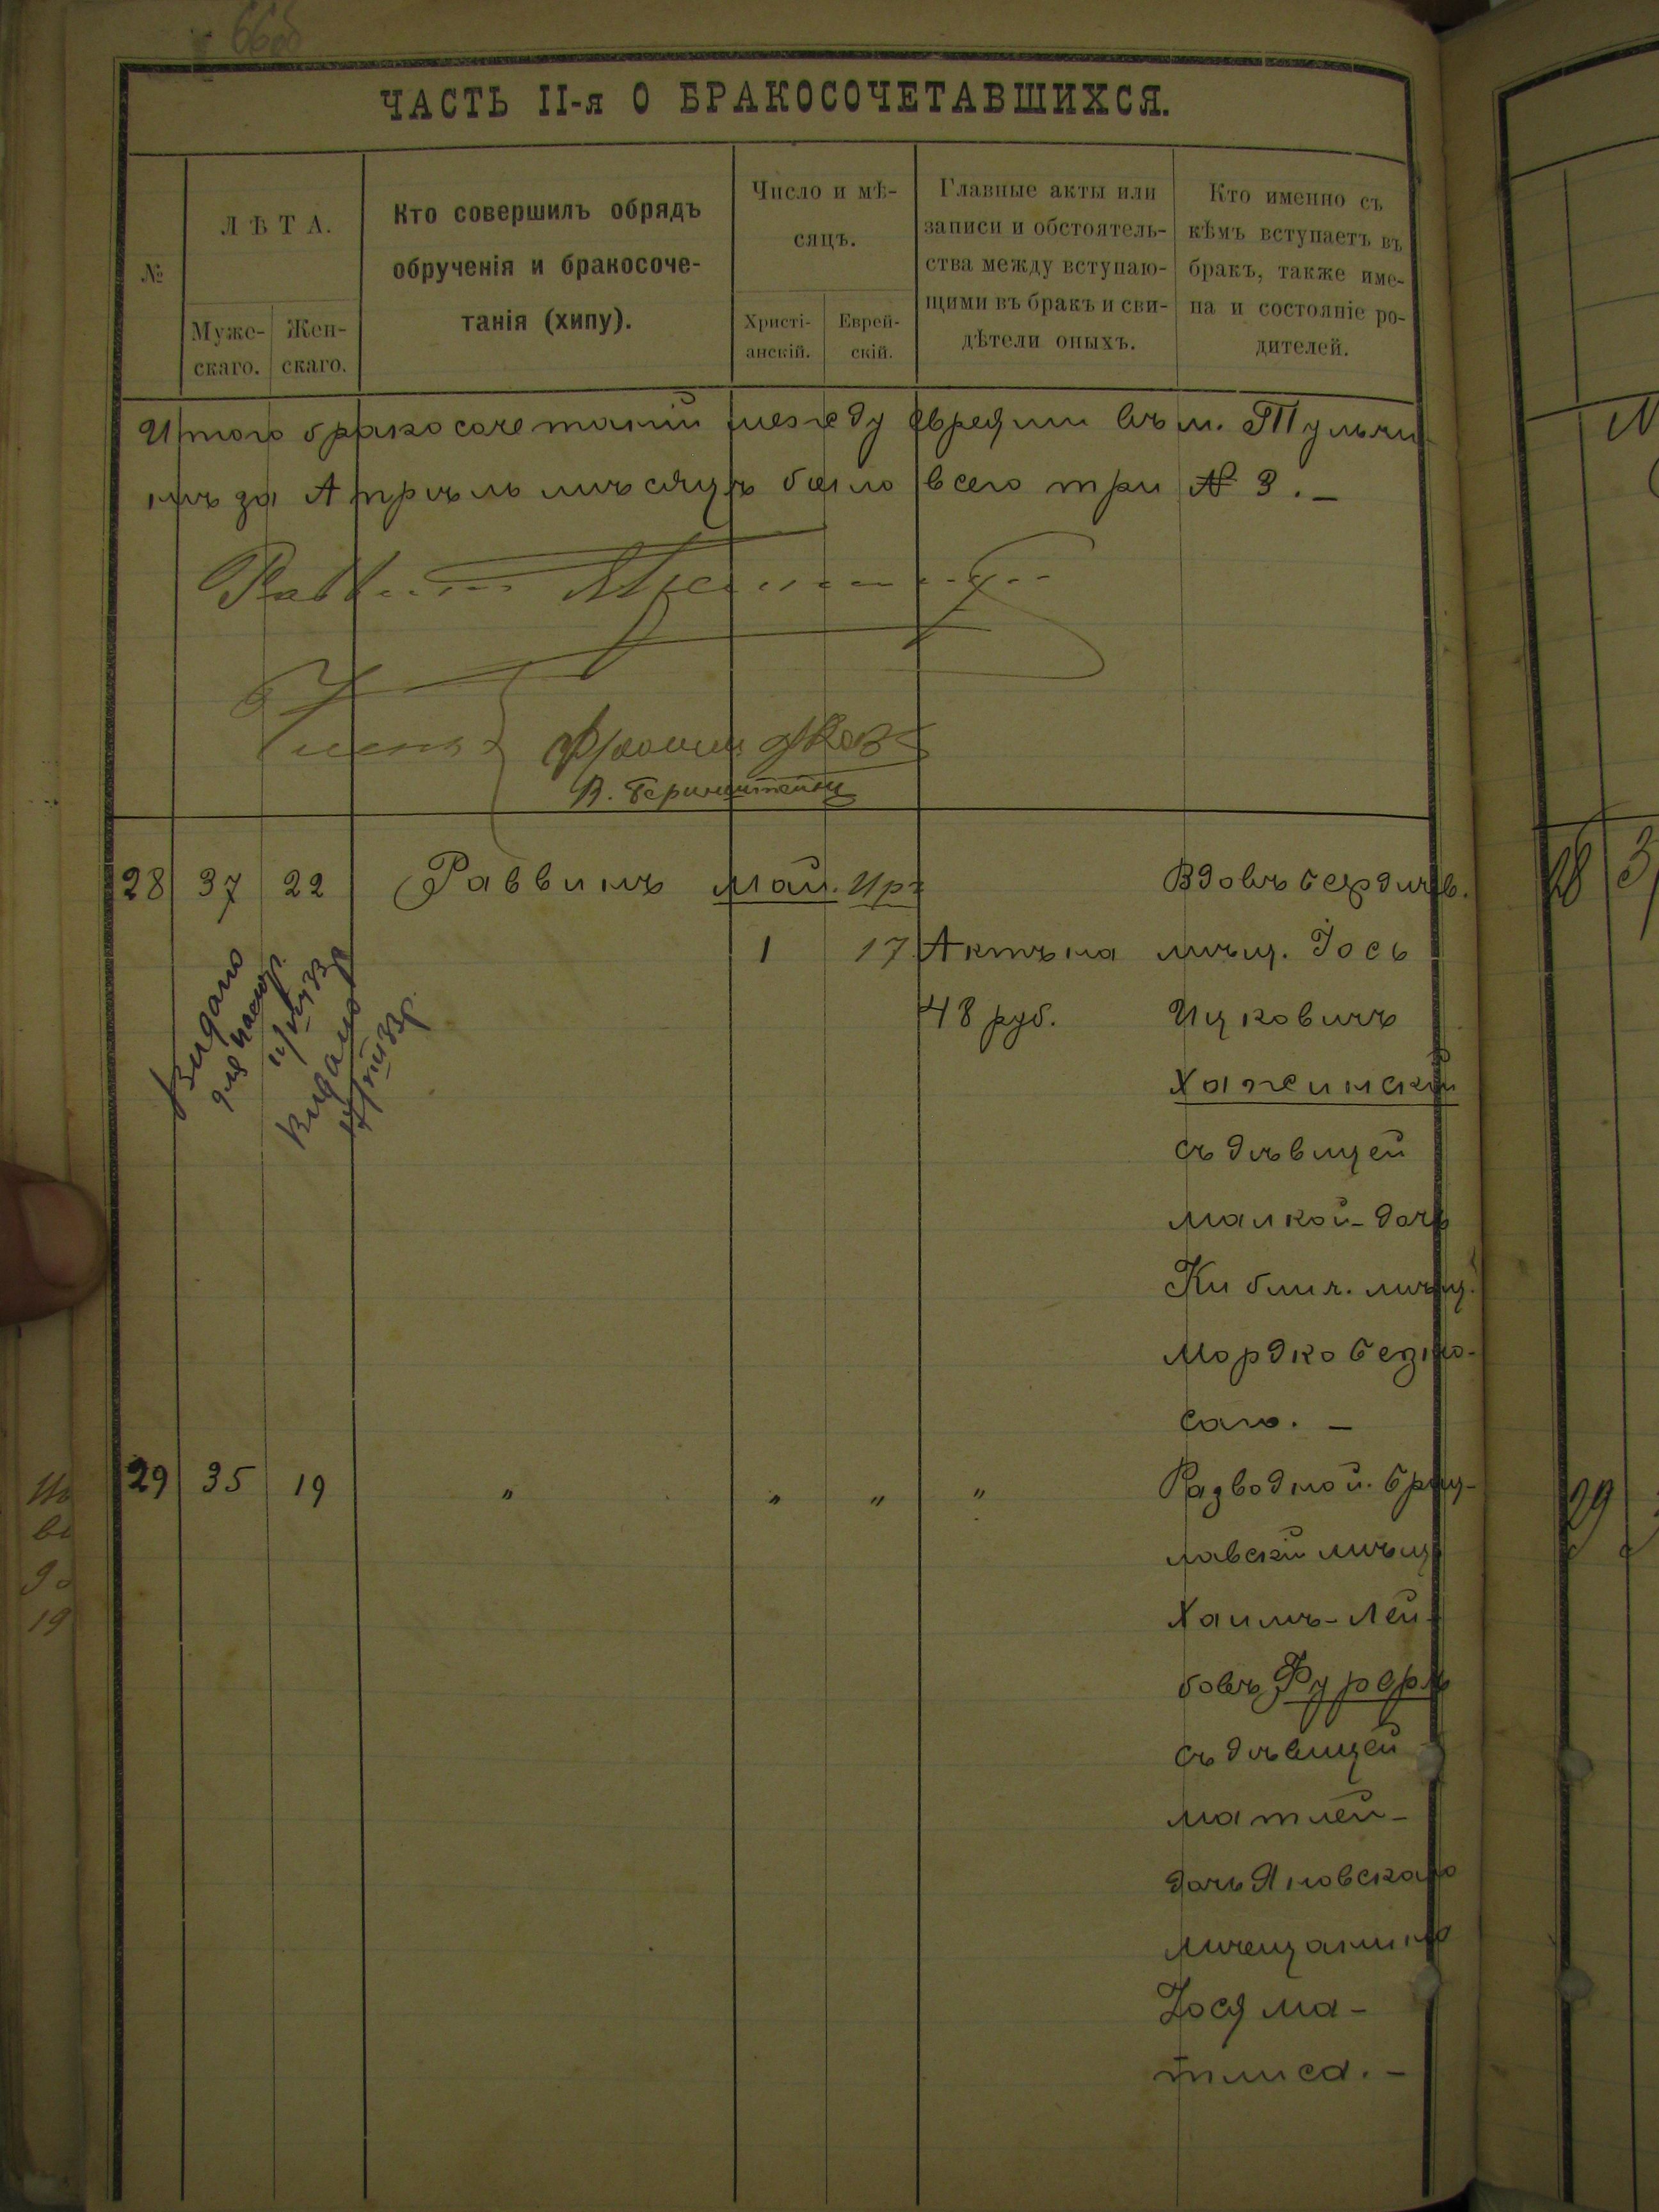 ЧАСТЬ II-я О БРАКОСОЧЕТАВШИХСЯ.
№
ЛѢТА.
Муже-
скаго.
Жен-
скаго.
Кто совершилъ обрядъ
обрученія и бракосоче-
танія (хипу).
Число и мѣ-
сяцъ.
Христі-
анскій.
Еврей-
скій.
Главные акты или
записи и обстоятель-
ства между вступаю-
щими въ бракъ и сви-
дѣтели оныхъ.
Кто именно съ
кѣмъ вступаетъ въ
бракъ, также име-
на и состояніе ро-
дителей.
Итого бракосочетаній между евреями въ м. Тульчи-
нѣ за Апрѣль мѣсяцъ было всего три № 3. –
В. Бернштейнъ
28 37 22 Раввинъ май. Ир. Вдовъ бердич.
1 17 Актъ на мѣщ. Іось
48 руб. Ицковичъ
Хажинскій
съ дѣвицей
Малкой - дочь
Киблич. мѣщ.
Мордко Безно-
саго. –
29 35 19 " " " " Разводной. Брац-
лавскій мѣщ.
Хаимъ-Лей-
бовъ Фуреръ
съ дѣвицей
Матлей -
дочь Яновскаго
мѣщанина
Іося Ма-
тлиса. –
Видано
для паспор.
Видано